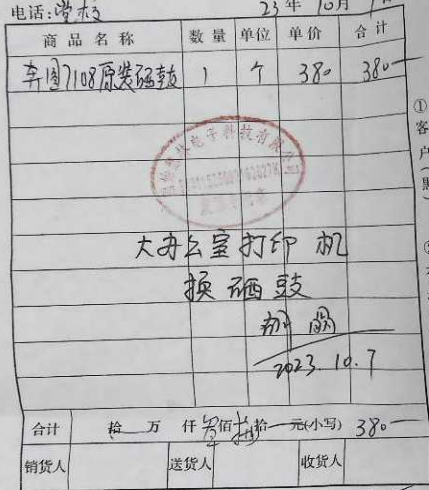 电话:学校 23年10月
商品名称 数量 单位 单价 合计
奔图7108原装硒鼓 1 个 380 380一
电子科技有限
大办公室打印机
换硒鼓
2023.10.7
合计 拾 万 仟 叁佰捌拾 元(小写) 380一
销货人 送货人 收货人
①
客
户